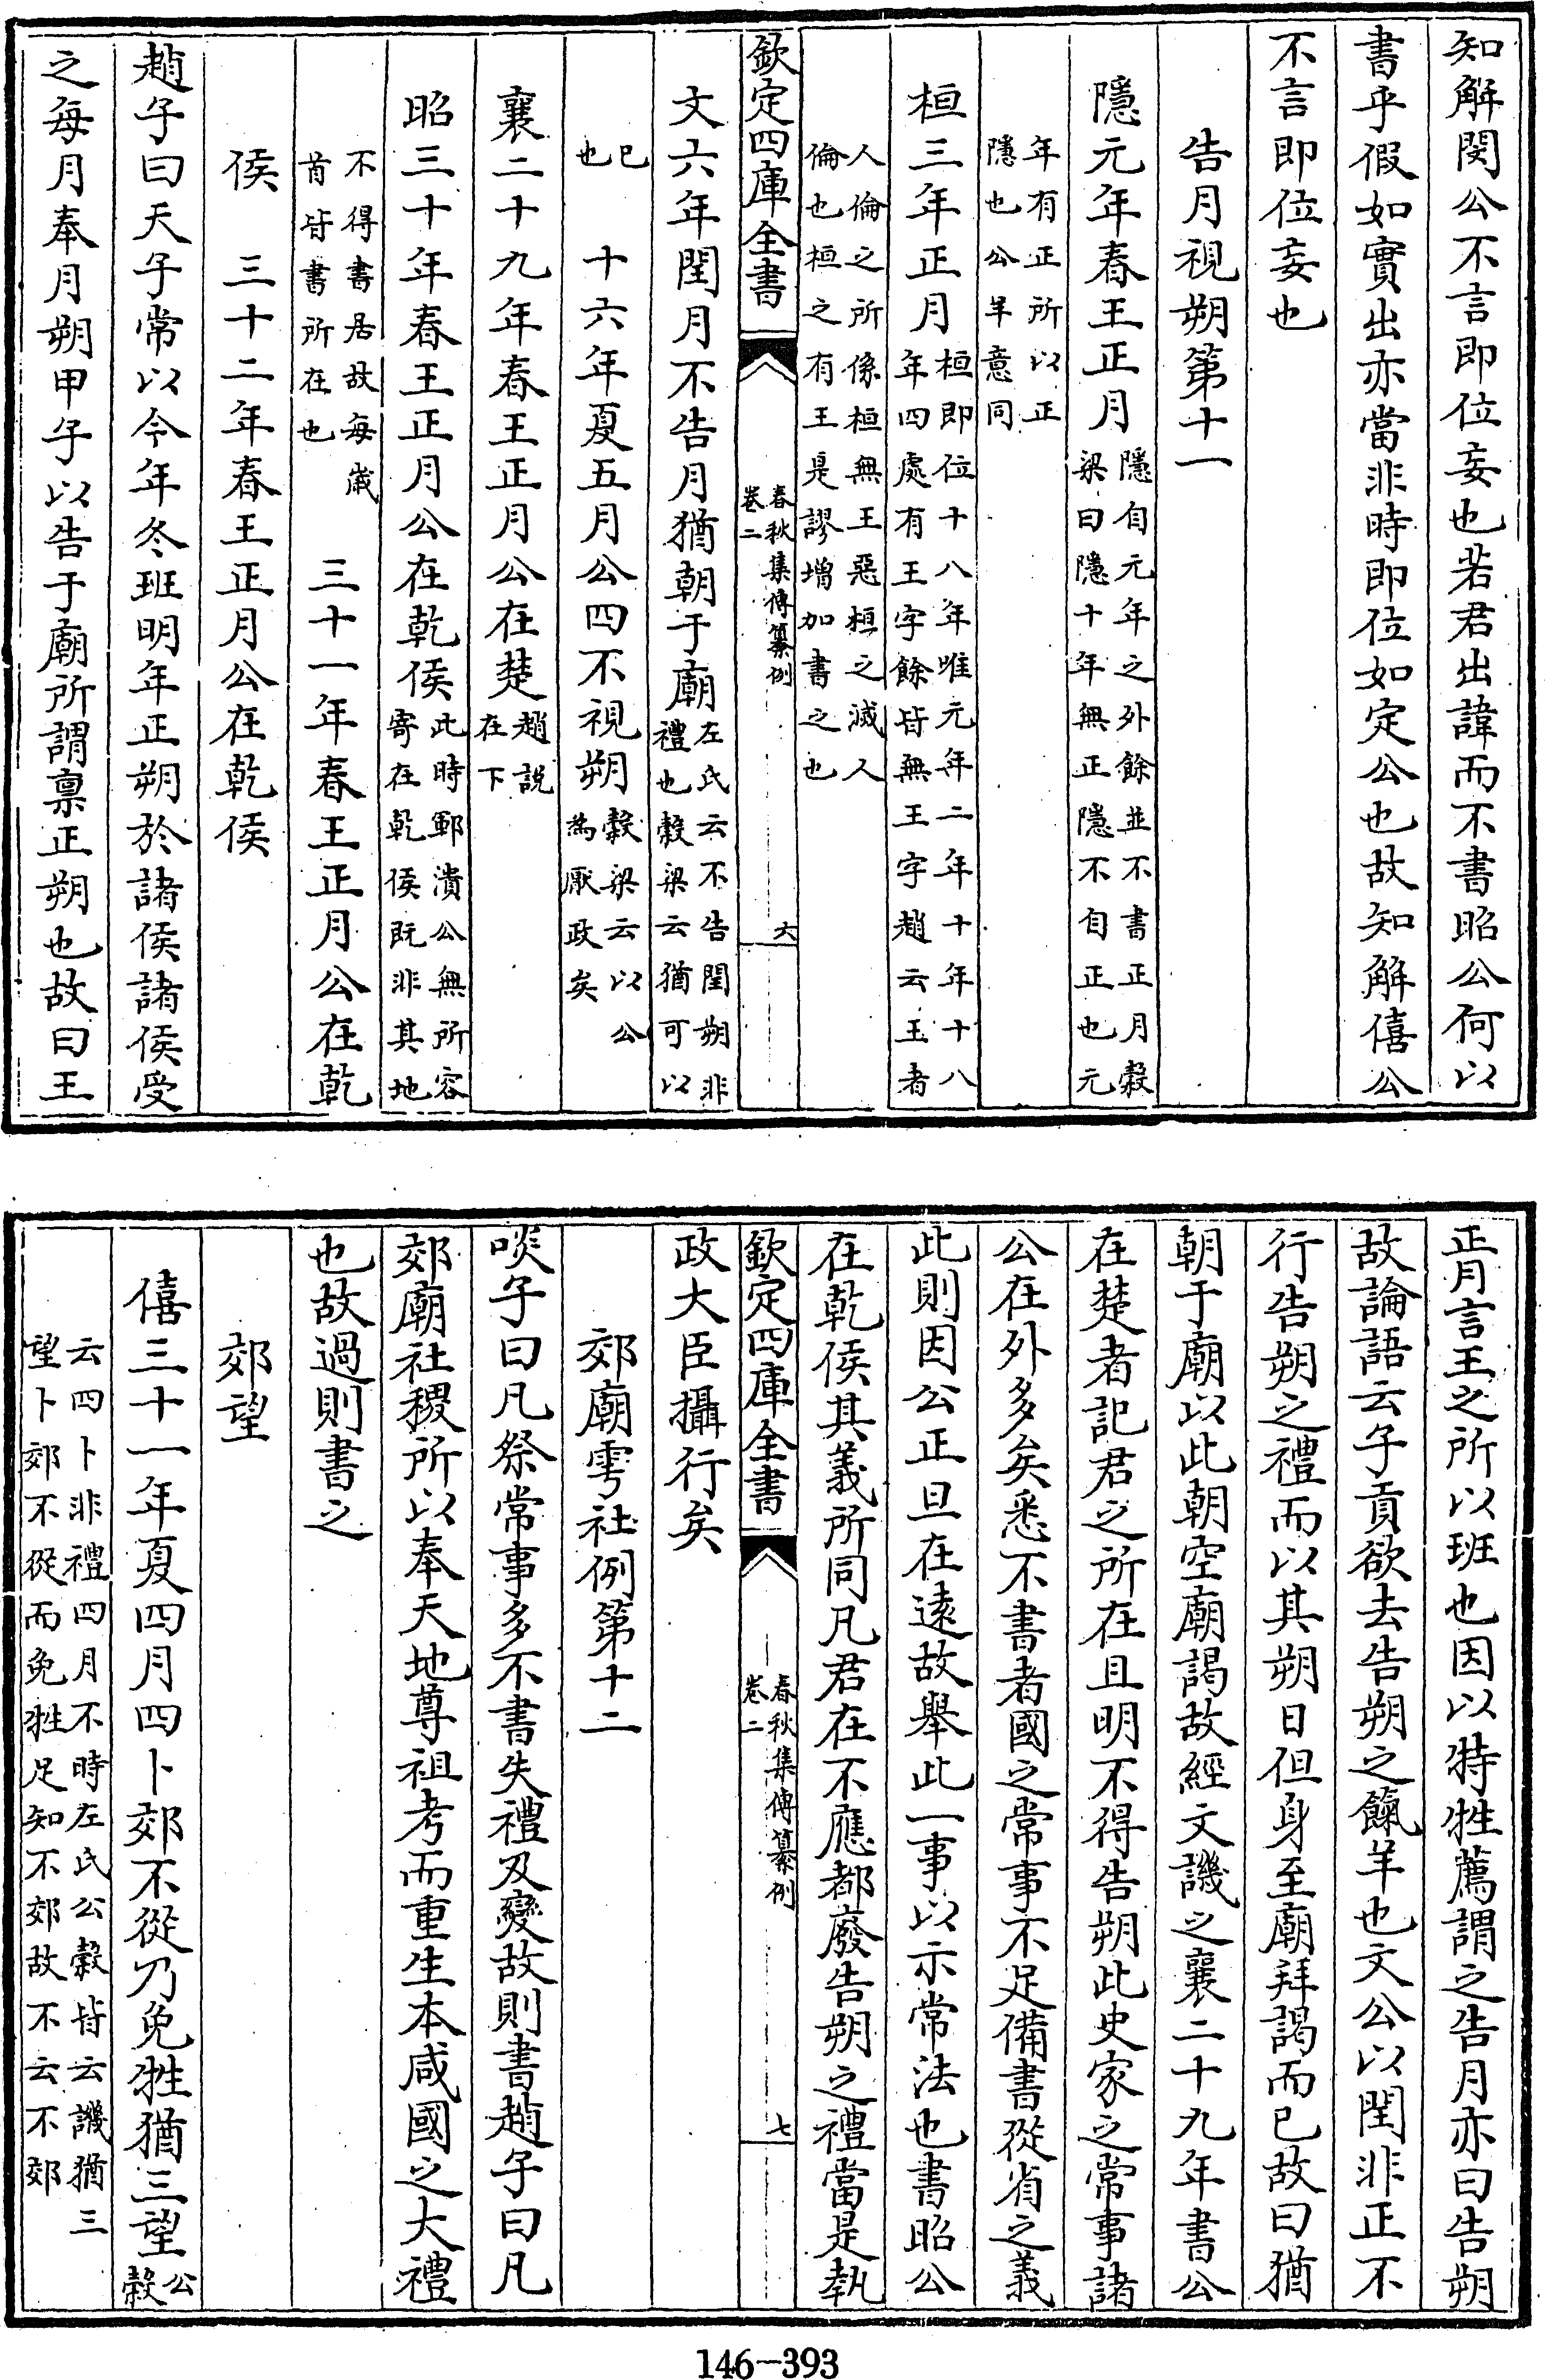 知解閔公不言即位妄也若君出諱而不書昭公何以
書乎假如實出亦當非時即位如定公也故知解僖公
不言即位妄也
告月視朔第十一
隱元年春王正月隱自元年之外餘並不書正月穀
梁曰隱十年無正隱不自正也元
年有正所以正
隱也公羊意同
桓三年正月桓即位十八年唯元年二年十年十八
年四處有王字餘皆無王字趙云王者
人倫之所係桓無王惡桓之滅人
倫也桓之有王是謬增加書之也
欽定四庫全書
春秋集傳纂例
卷二
六
文六年閏月不告月猶朝于廟左氏云不告閏朔非
禮也穀梁云猶可以
已
也
十六年夏五月公四不視朔穀梁云以公
為厭政矣
襄二十九年春王正月公在楚趙說
在下
昭三十年春王正月公在乾侯此時鄆潰公無所容
寄在乾侯既非其地
不得書居故每歲
首皆書所在也
三十一年春王正月公在乾
侯 三十二年春王正月公在乾侯
趙子曰天子常以今年冬班明年正朔於諸侯諸侯受
之每月奉月朔甲子以告于廟所謂稟正朔也故曰王
正月言王之所以班也因以特牲薦謂之告月亦曰告朔
故論語云子貢欲去告朔之餼羊也文公以閏非正不
行告朔之禮而以其朔日但身至廟拜謁而已故曰猶
朝于廟以此朝空廟謁故經文譏之襄二十九年書公
在楚者記君之所在且明不得告朔此史家之常事諸
公在外多矣悉不書者國之常事不足備書從省之義
此則因公正旦在遠故舉此一事以示常法也書昭公
在乾侯其義所同凡君在不應都廢告朔之禮當是執
欽定四庫全書
春秋集傳纂例
卷二
七
政大臣攝行矣
郊廟雩社例第十二
啖子曰凡祭常事多不書失禮及變故則書趙子曰凡
郊廟社稷所以奉天地尊祖考而重生本咸國之大禮
也故過則書之
郊望
僖三十一年夏四月四卜郊不從乃免牲猶三望公
穀
云四卜非禮四月不時左氏公穀皆云譏猶三
望卜郊不從而免牲足知不郊故不云不郊
146-393